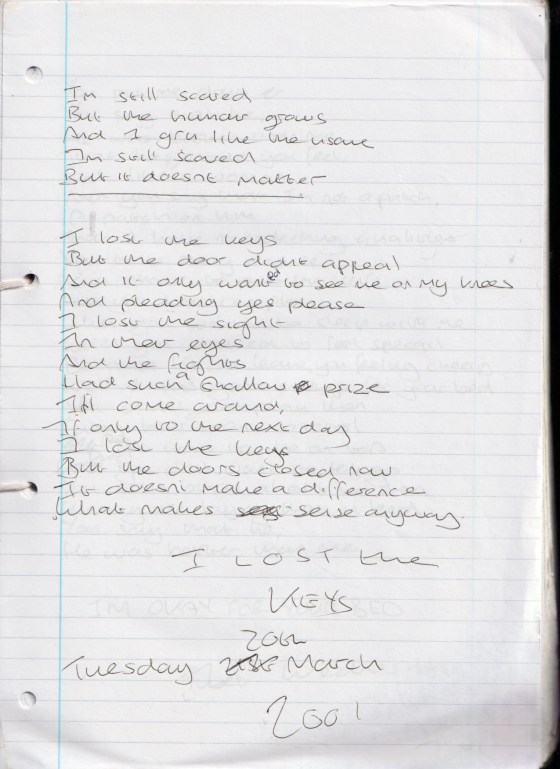 I'm still scared
But the humour grows
And I grn like the insane
I'm still scared
But it doesn't matter
I lost the keys
But the door didn't appeal
And it only wanted to see me on my knees
And pleading yes please
I lost the sight
In their eyes
And the fights
Had such a shallow prize
It'll come around,
If only to the next day
I lost the keys
But the doors closed now
It doesn't make a difference
What makes seise anyway.
I LOST the
KEYS
20th
Tuesday March
2001